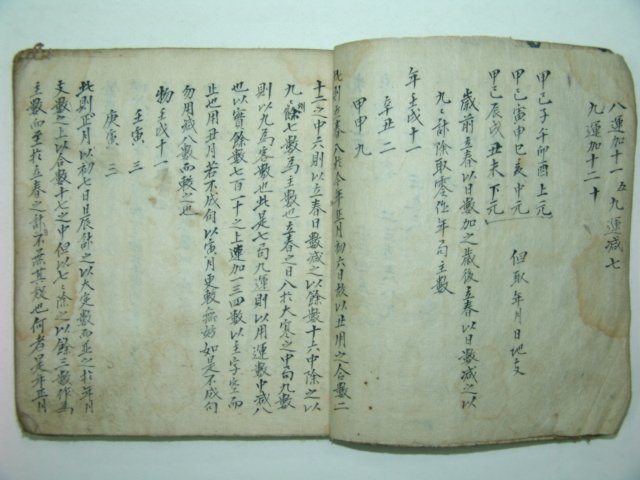 八運加十一 五九運減七
九運加十二十
甲己子午卯酉上元
甲己寅申巳亥中元 但取年月日地支
甲己辰戌丑未下元
歲前立春以日數加之歲後立春以日數減之以
九〻計除取零作年局主數
年壬戌十一
辛丑二
甲申九
此則立春入於今年正月初六日故以丑用之合數二
十二之中六則以立春日數減之以餘數十六中除之以
九〻除餘七數為主數也立春之日入於大寒之中局九數
則以九為客數也此是七局九運則以用運數中減八
也以實餘數七百一十之上連加一三四數以主字空而
止也用丑月若不成局以寅月更數無妨如是不成局
勿用減八數而較之也
物壬戌十一
壬寅 三
庚寅 三
此則正月以初七日辰計之以大定數而並之於年月
支數之上以合數十七之中但以七〻除之以餘三數作為
主數而至於立春之計不無其疑也何者是年正月